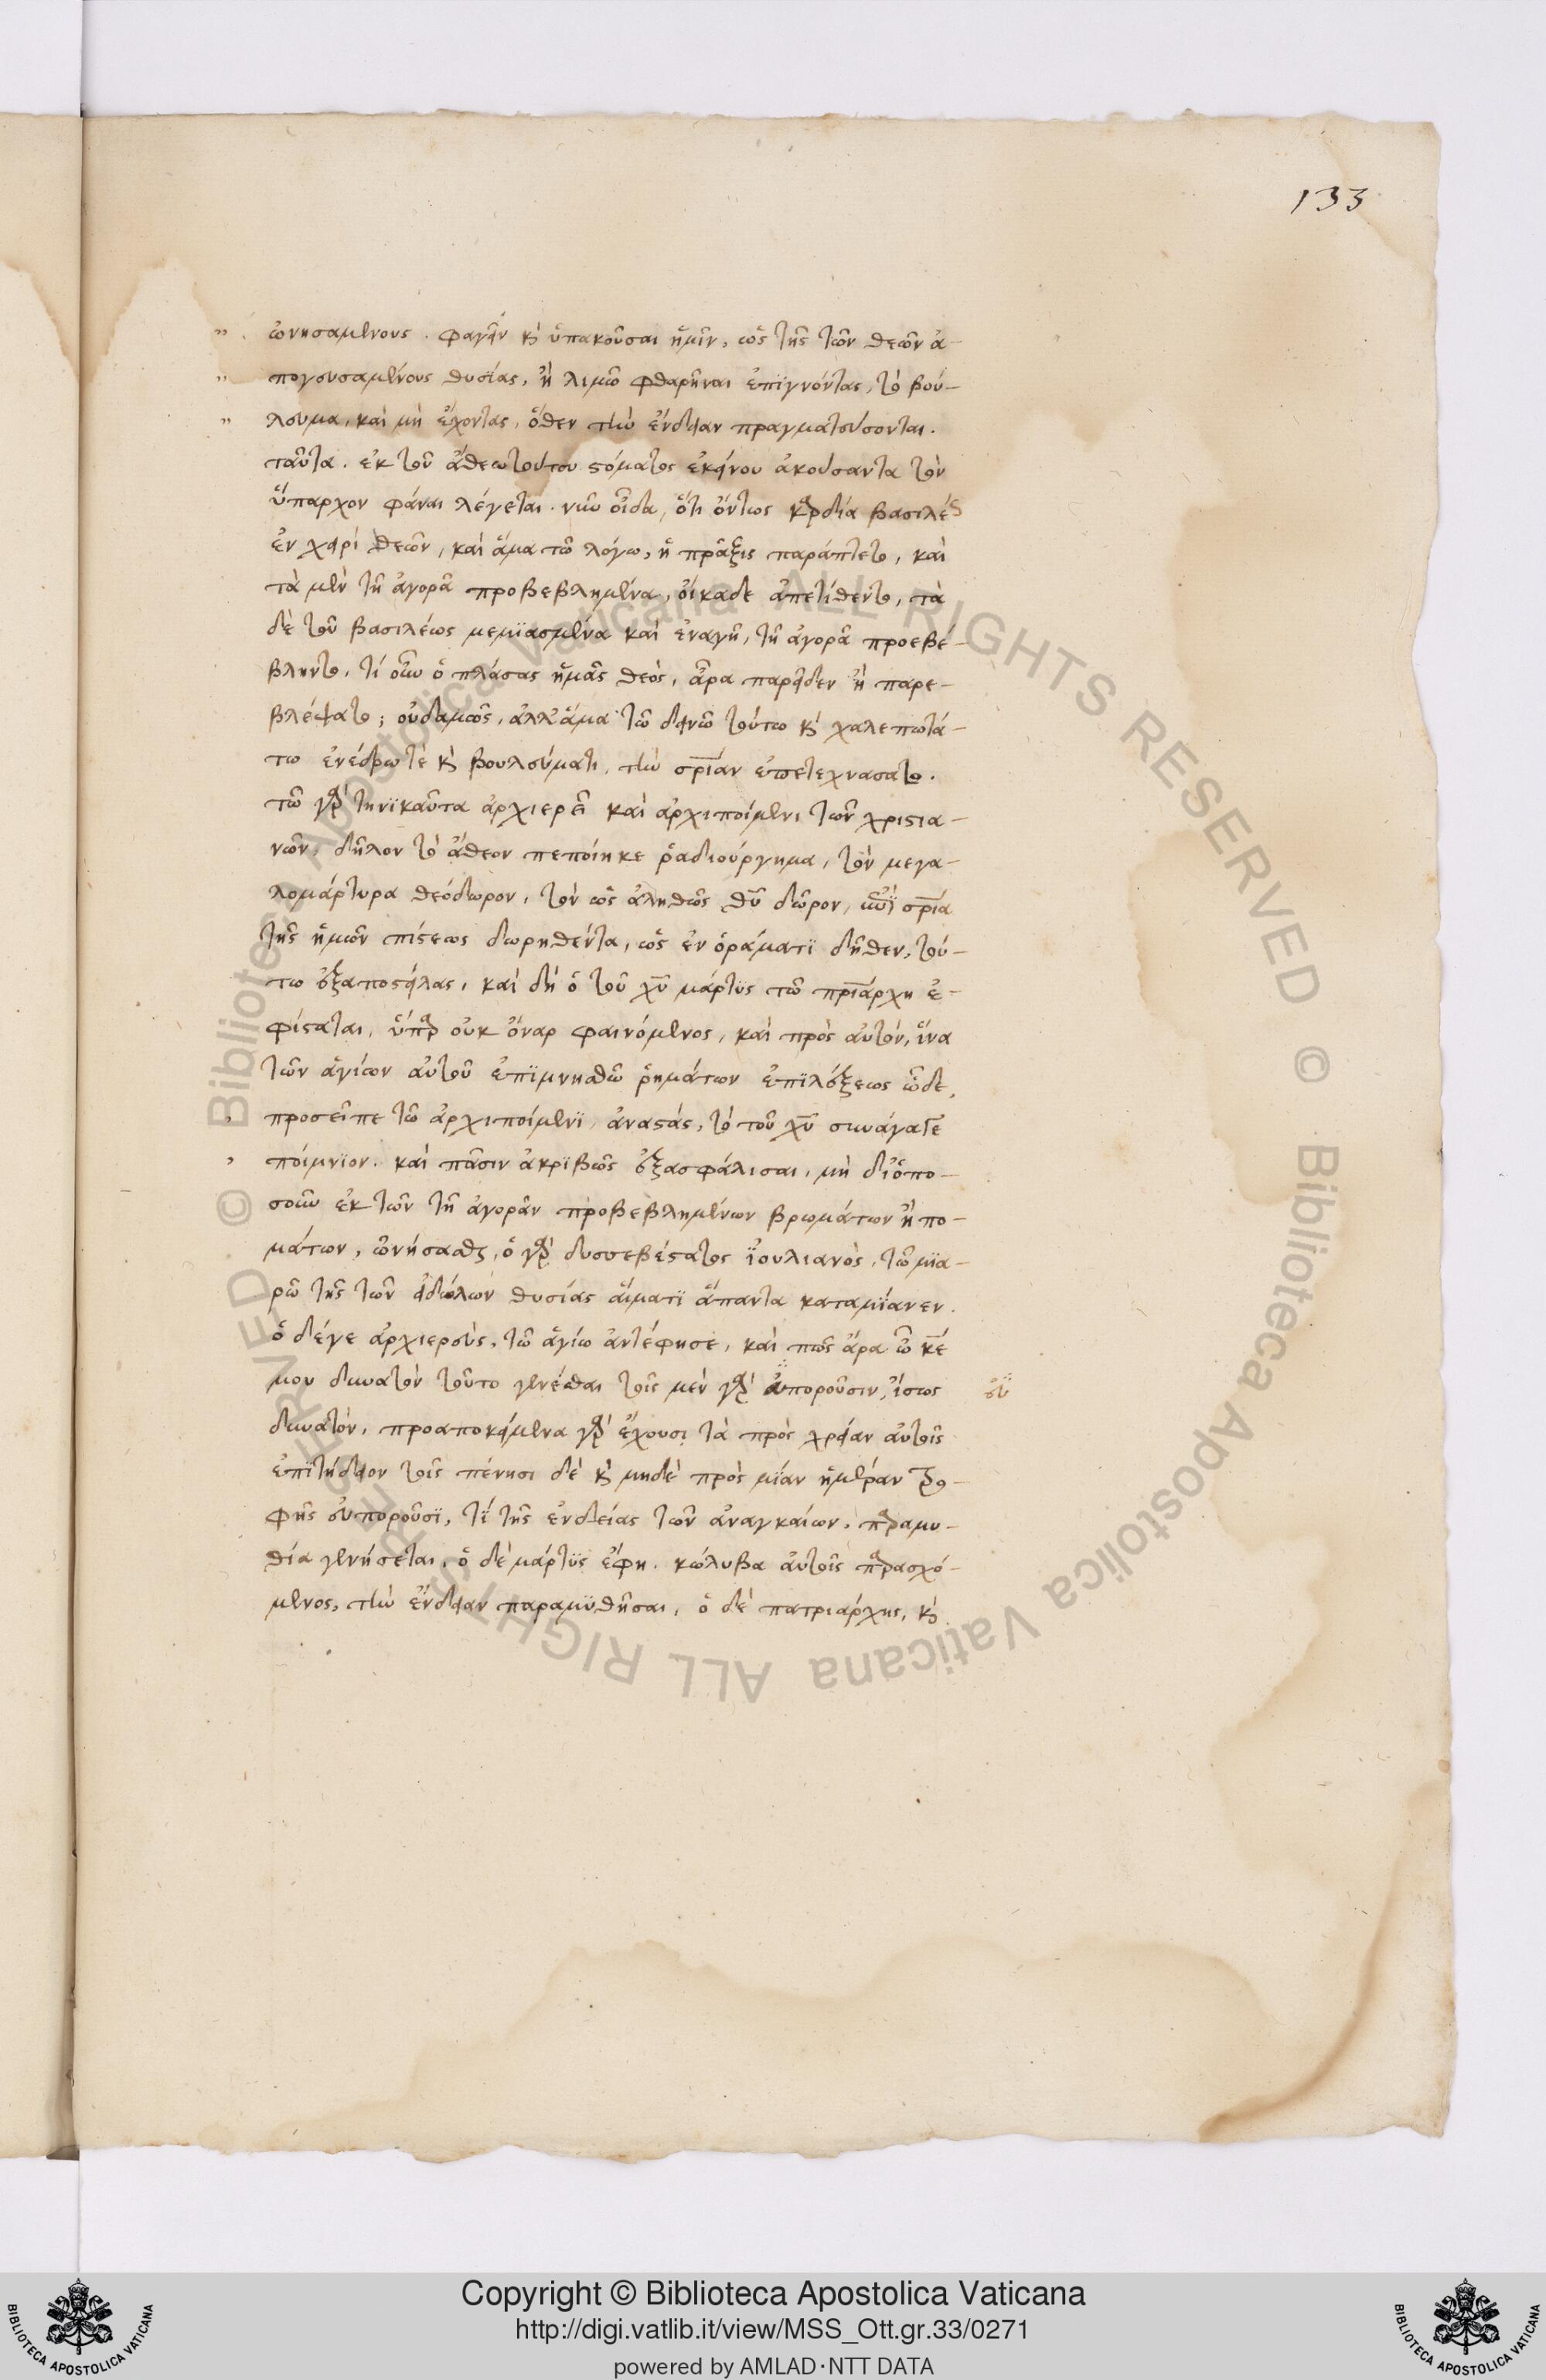 133
ὠνησαμένους. φαγεῖν κὶ ὑπακοῦσαι ἡμῖν, ὡς τῆς τῶν θεῶν ἀ-
πογευσαμένους θυσίας, ἢ λιμῶ φθαρῆναι ἐπϊγνόντας, τὸ βού-
λευμα, καὶ μὴ ἔχοντας, ὅθεν τὴν ἔνδειαν πραγματεύσονται.
ταῦτα. ἐκ τοῦ ἀθεωτάτου στόματος ἐκείνου ἀκούσαντα τὸν
ὕπαρχον φάναι λέγεται. νῦν οἶδα, ὅτι ὄντως καρδία βασιλέως
ἐν χειρὶ θεῶν, καὶ ἅμα τῶ λόγω, ἡ πρᾶξις παράπτετο, καὶ
τὰ μὲν τῆ ἀγορᾶ προβεβλημένα, οἴκαδε ἀπετίθεντο, τὰ
δὲ τοῦ βασιλέως μεμϊασμένα καὶ ἐναγῆ, τῆ ἀγορᾶ προεβέ-
βληντο, τί οὖν ὁ πλάσας ἡμᾶς θεὸς, ἆρα παρεῖδεν ἢ παρε-
βλέψατο; οὐδαμῶς, ἀλλ' ἅμα τῶ δεινῶ τούτω κὶ χαλεπωτά-
τω ἐνέδρω τὲ κὶ βουλεύματι, τὴν σρίαν ἐπετεχνάσατο.
τῶ γὰρ τηνϊκαῦτα ἀρχιερεῖ καὶ ἀρχιποίμενι τῶν χριστια-
νῶν, δῆλον τὸ ἄθεον πεποίηκε ῥαδιούργημα, τὸν μεγα-
λομάρτυρα θεόδωρον, τὸν ὡς ἀληθῶς θυ δῶρον, ὑπὲρ σρία
τῆς ἡμῶν πίστεως δωρηθέντα, ὡς ἐν ὁράματϊ δῆθεν, τού-
τω ἐξαποστείλας, καὶ δὴ ὁ τοῦ χυ μάρτϋς τῶ πριάρχη ἐ-
φίσταται, ὕπαρ οὐκ ὄναρ φαινόμενος, καὶ πρὸς αὐτὸν, ἵνα
τῶν ἁγίων αὐτοῦ ἐπϊμνησθῶ ῥημάτων ἐπϊλέξεως ὧδε,
προσεῖπε τῶ ἀρχιποίμενϊ, ἀναστάς, τὸ τοῦ χυ συνάγαγε
ποίμνϊον. καὶ πᾶσιν ἀκρϊβῶς ἐξασφάλισαι, μὴ δι' ὁπο-
σοῦν ἐκ τῶν τῆ ἀγορᾶν προβεβλημένων βρωμάτων ἢ πο-
μάτων, ὠνήσασθαι, ὁ γὰρ δυσσεβέστατος ἰουλιανὸς, τῶ μϊα-
ρῶ τῆς τῶν εἰδώλων θυσίας αἵματϊ ἅπαντα καταμϊανεν.
ὁ δέγε ἀρχιερεὺς, τῶ ἁγίω ἀντέφησε, καὶ πῶς ἄρα ὦ κέ
μου δυνατὸν τοῦτο γενέσθαι τοῖς μὲν γὰρ ἀποροῦσιν, ἴσως εὐ
δυνατόν, προαποκείμενα γὰρ ἔχουσι τὰ πρὸς χρείαν αὐτοῖς
ἐπϊτήδειον τοῖς πένησι δὲ κὶ μηδὲ πρὸς μϊαν ἡμέραν τρο-
φῆς εὐποροῦσϊ, τί τῆς ἐνδείας τῶν ἀναγκαίων, παραμυ-
θία γενήσεται. ὁ δὲ μάρτϋς ἔφη. κώλυβα αὐτοῖς παρασχό-
μενος, τὴν ἔνδειαν παραμϋθῆσαι. ὁ δὲ πατριάρχης, κὶ
Copyright © Biblioteca Apostolica Vaticana
http://digi.vatlib.it/view/MSS_Ott.gr.33/0271
powered by AMLAD·NTT DATA